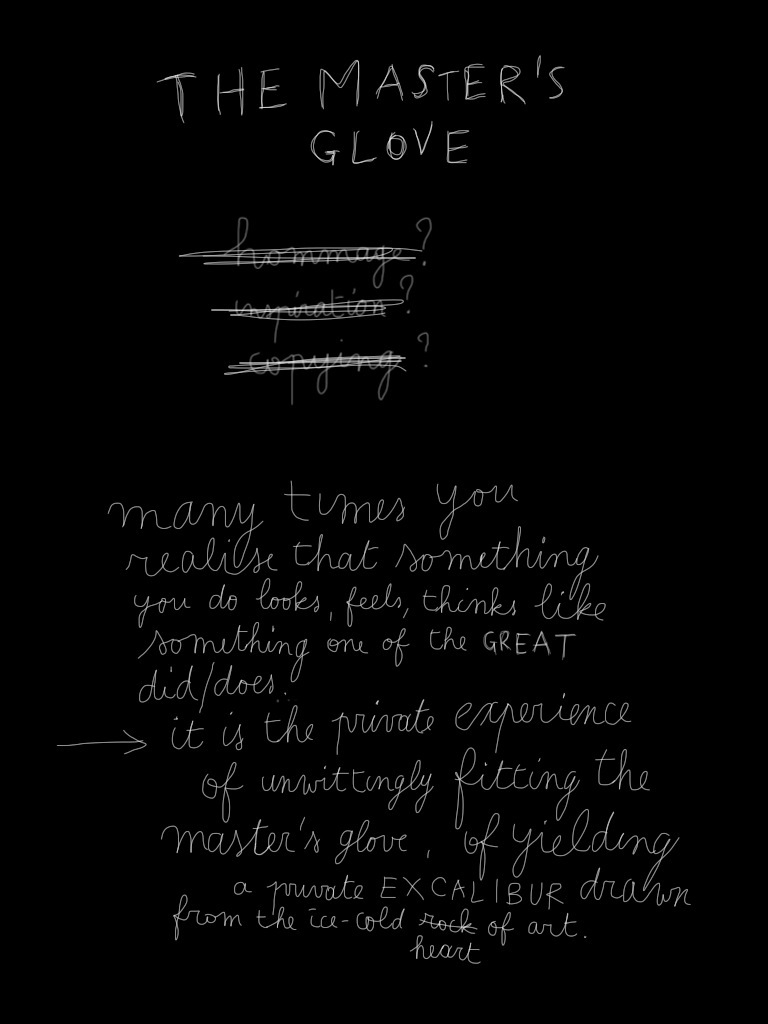 THE MASTER'S
GLOVE
hommage?
inspiration?
copying?
many times you
realise that something
you do looks, feels, thinks like
something one of the GREAT
did/does..
→ it is the private experience
of unwittingly fitting the
master's glove, of yielding
a private EXCALIBUR drawn
from the ice-cold rock of art.
heart